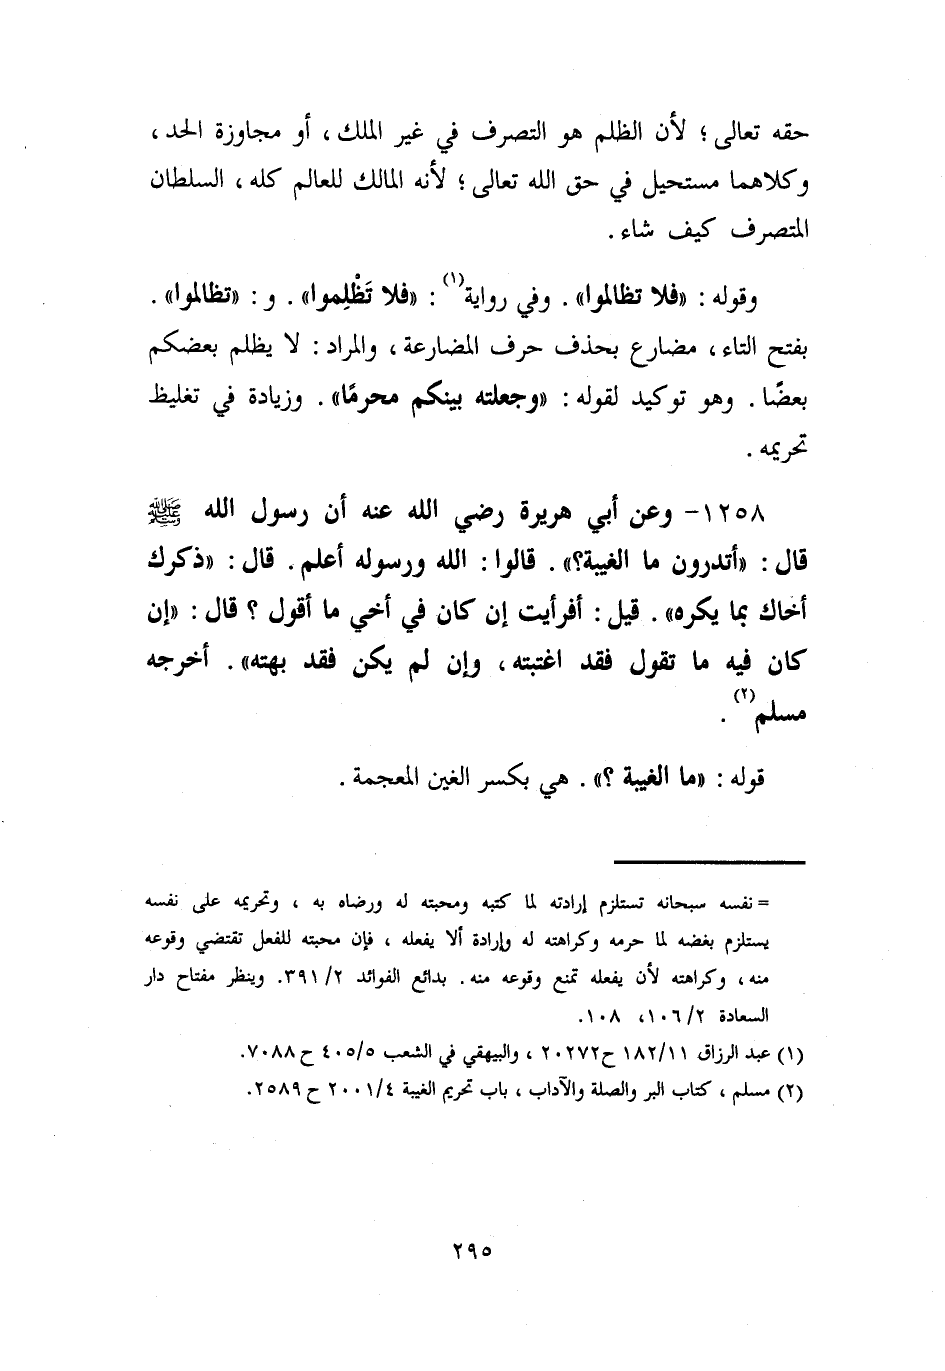 حقه تعالى؛ لأن الظلم هو التصرف في غير الملك، أو مجاوزة الحد،
وكلاهما مستحيل في حق الله تعالى؛ لأنه المالك للعالم كله، السلطان
المتصرف كيف شاء.
وقوله: «فلا تظالموا». وفي رواية(١): «فلا تَظْلِموا». و: «تظالموا».
بفتح التاء، مضارع بحذف حرف المضارعة، والمراد: لا يظلم بعضكم
بعضًا. وهو توكيد لقوله: «وجعلته بينكم محرمًا». وزيادة في تغليظ
تحريمه.
١٢٥٨- وعن أبي هريرة رضي الله عنه أن رسول الله ﷺ
قال: «أتدرون ما الغيبة؟». قالوا: الله ورسوله أعلم. قال: «ذكرك
أخاك بما يكره». قيل: أفرأيت إن كان في أخي ما أقول؟ قال: «إن
كان فيه ما تقول فقد اغتبته، وإن لم يكن فقد بهته». أخرجه
مسلم(٢).
قوله: «ما الغيبة؟». هي بكسر الغين المعجمة.
= نفسه سبحانه تستلزم إرادته لما كتبه ومحبته له ورضاه به، وتحريمه على نفسه
يستلزم بغضه لما حرمه وكراهته له وإرادة ألا يفعله، فإن محبته للفعل تقتضي وقوعه
منه، وكراهته لأن يفعله تمنع وقوعه منه. بدائع الفوائد ٢/ ٣٩١. وينظر مفتاح دار
السعادة ٢/ ١٠٦، ١٠٨.
(١) عبد الرزاق ١١/ ١٨٢ ح٢٠٢٧٢، والبيهقي في الشعب ٥/ ٤٠٥ ح٧٠٨٨.
(٢) مسلم، كتاب البر والصلة والآداب، باب تحريم الغيبة ٤/ ٢٠٠١ ح٢٥٨٩.
٢٩٥